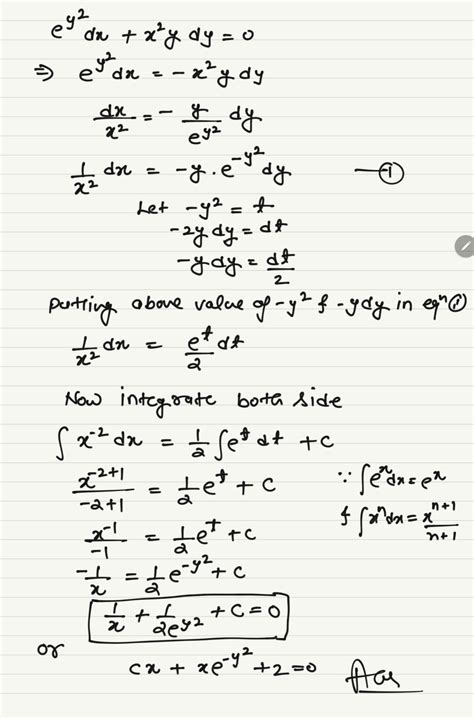 e^{y^2} dx + x^2 y dy = 0
⇒ e^{y^2} dx = - x^2 y dy
dx/x^2 = - y/e^{y^2} dy
1/x^2 dx = -y . e^{-y^2} dy —①
Let -y^2 = t
-2y dy = dt
-y dy = dt/2
putting above value of -y^2 & -ydy in eqn ①
1/x^2 dx = e^t/2 dt
Now integrate both side
∫ x^{-2} dx = 1/2 ∫ e^t dt + C
x^{-2+1}/-2+1 = 1/2 e^t + C ∵ ∫ e^x dx = e^x
x^{-1}/-1 = 1/2 e^t + C & ∫ x^n dx = x^{n+1}/n+1
-1/x = 1/2 e^{-y^2} + C
1/x + 1/2e^{y^2} + C = 0
or
cx + xe^{-y^2} + 2 = 0 Ans